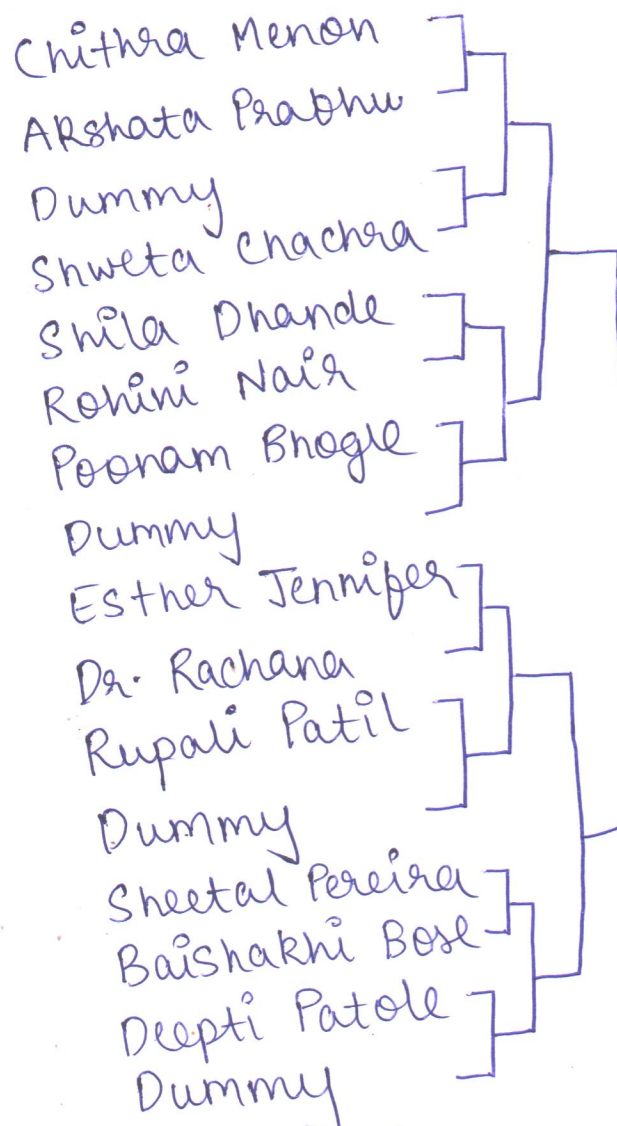 Chithra Menon
Akshata Prabhu
Dummy
Shweta Chachra
Shila Dhande
Rohini Nair
Poonam Bhogle
Dummy
Esther Jennifer
Dr. Rachana
Rupali Patil
Dummy
Sheetal Pereira
Baishakhi Bose
Deepti Patole
Dummy